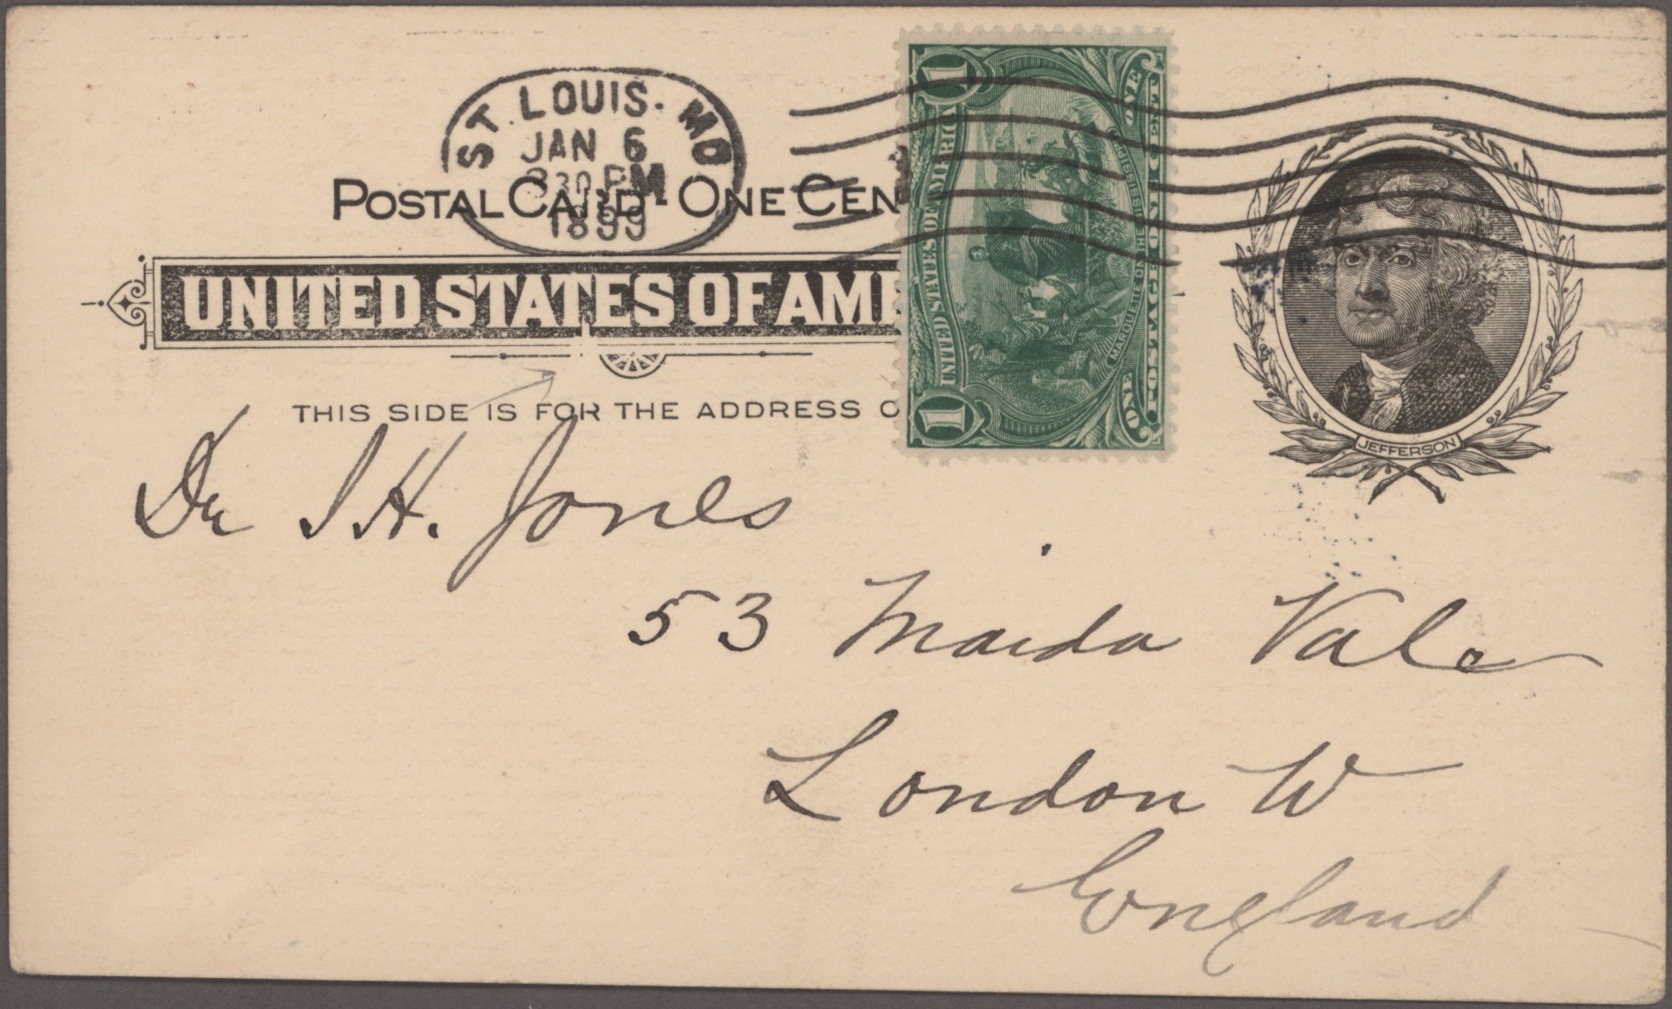 ST. LOUIS. MO
JAN 6
830 PM
1899
POSTAL CARD ONE CEN
UNITED STATES OF AME
THIS SIDE IS FOR THE ADDRESS O
1 1
UNITED STATES OF AMERICA
MARQUETTE ON THE MISSISSIPPI
ONE POSTAGE ONE CENT ONE
JEFFERSON
Dr I H. Jones
53 Maida Vale
London W
England